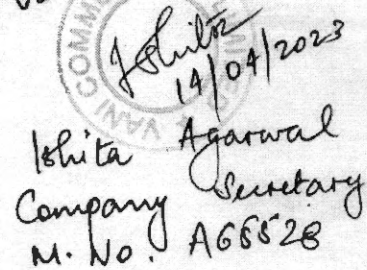 VANI COMM
Ishita
14/04/2023
Ishita Agarwal
Company Secretary
M. No. A65528